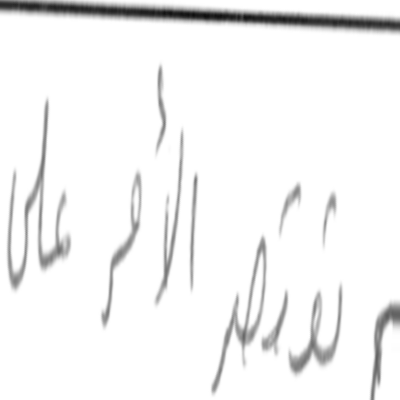 م تقتصر الأمر على